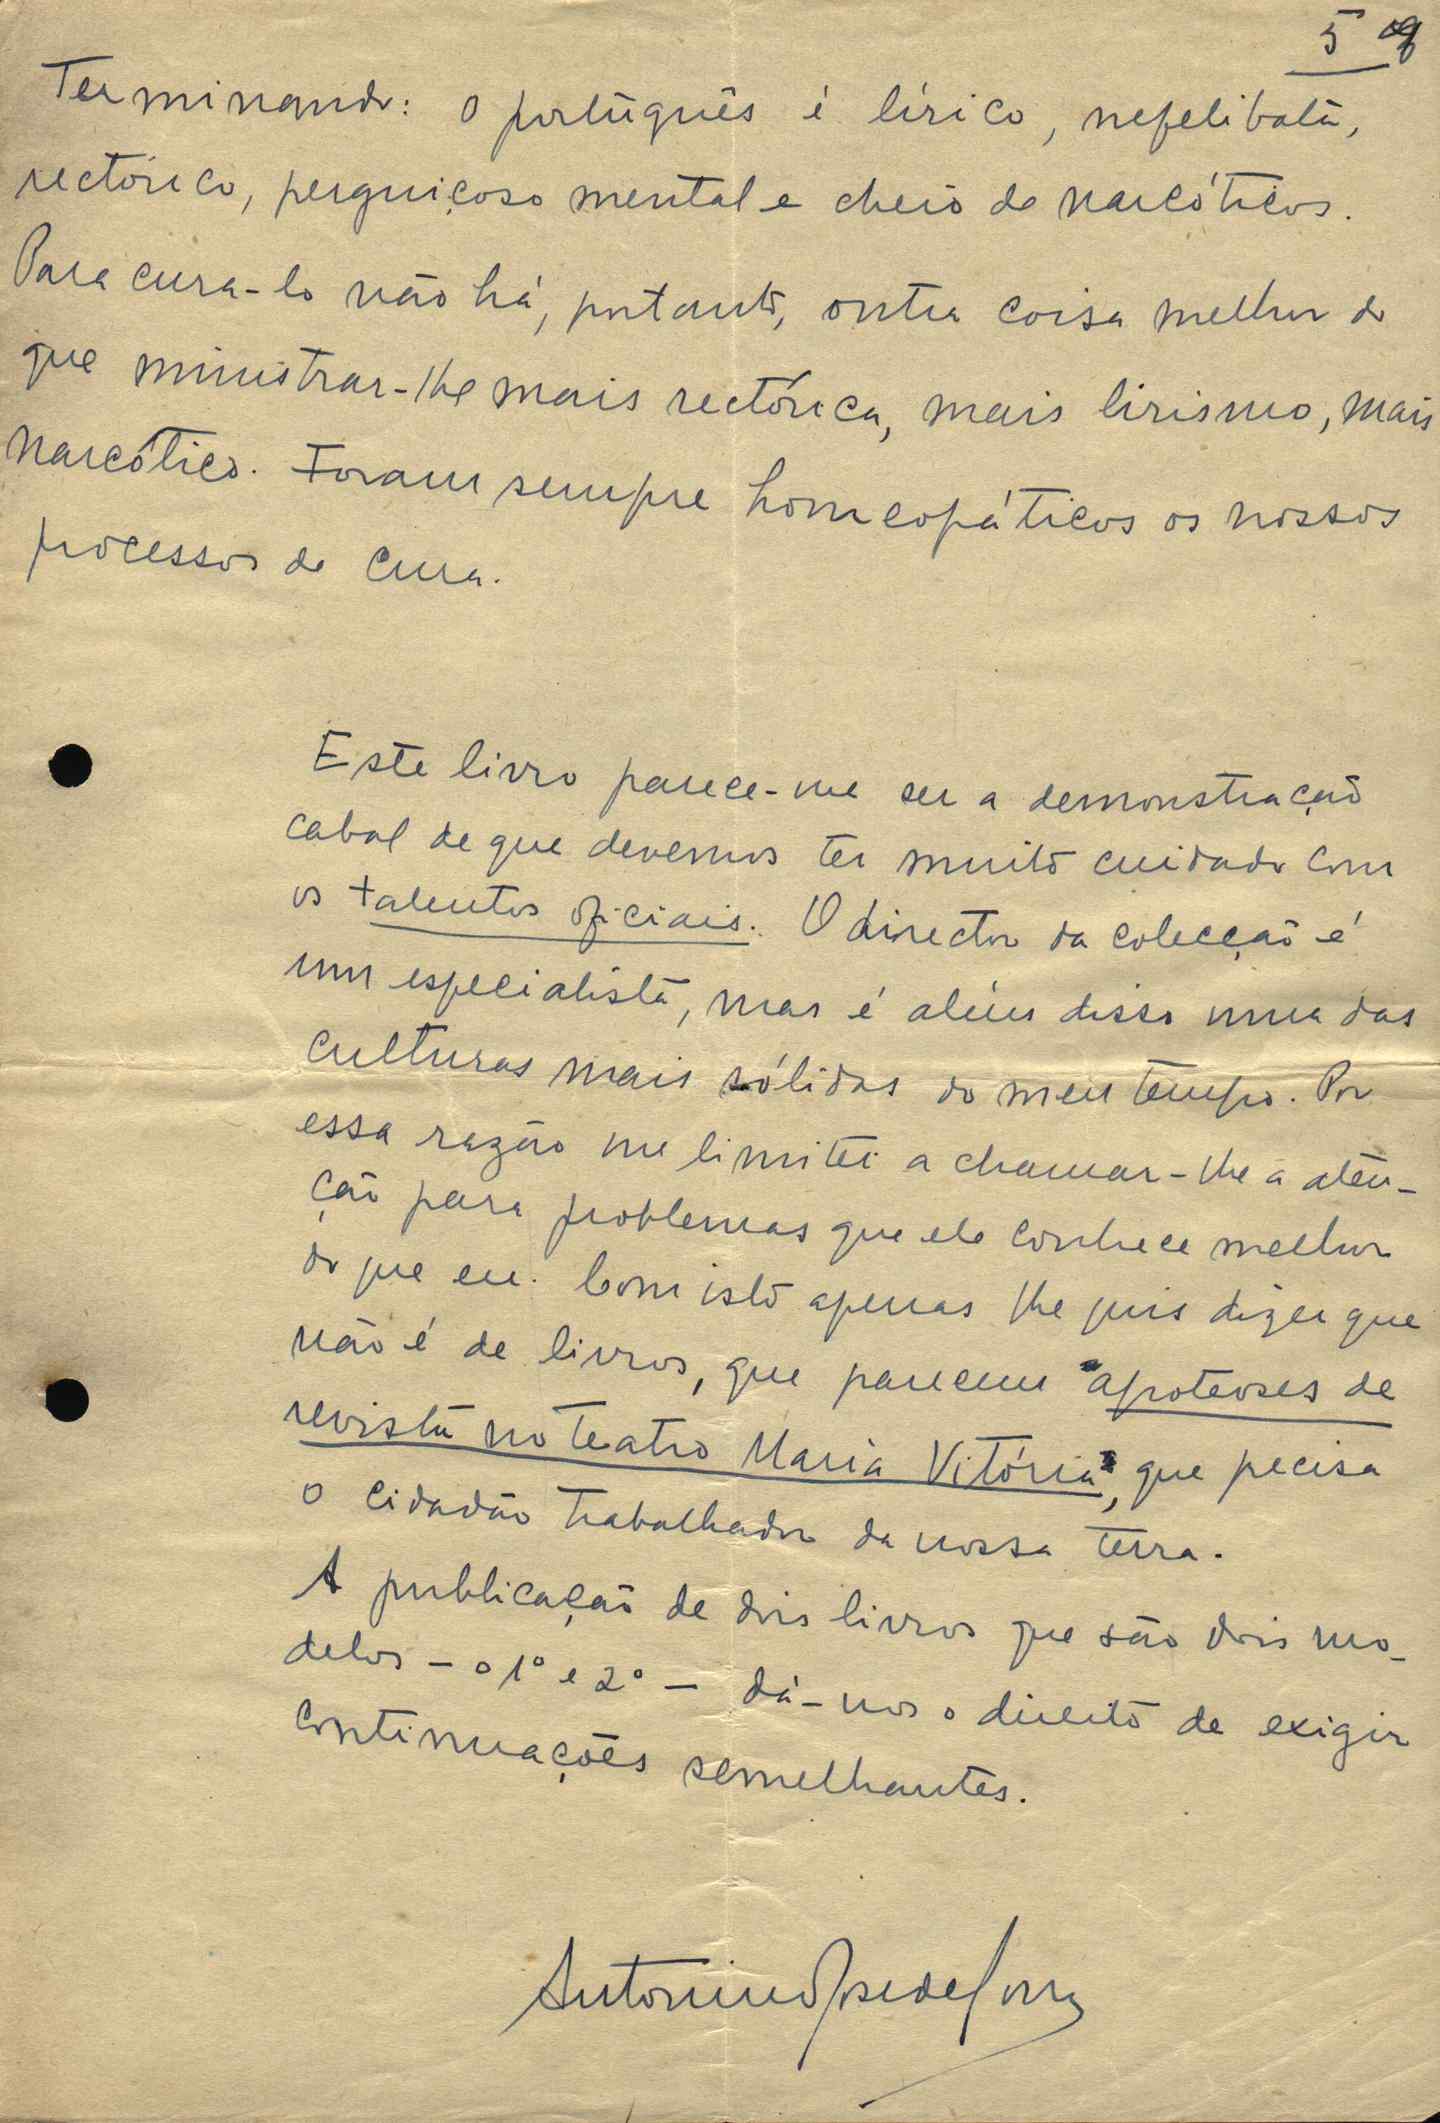 5
Terminando: o português é lírico, nefelibata,
rectórico, perguiçoso mental e cheio de narcóticos.
Para cura-lo não há, portanto, outra coisa melhor do
que ministrar-lhe mais rectórica, mais lirismo, mais
narcótico. Foram sempre homeopáticos os nossos
processos de cura.
Este livro parece-me ser a demonstração
cabal de que devemos ter muito cuidado com
os talentos oficiais. O director da colecção é
um especialista, mas é além disso uma das
culturas mais sólidas do meu tempo. Por
essa razão me limitei a chamar-lhe a aten-
ção para problemas que ele conhece melhor
do que eu. Com isto apenas lhe quis dizer que
não é de livros, que parecem "apoteoses de
revista no teatro Maria Vitória", que precisa
o cidadão trabalhador da nossa terra.
A publicação de dois livros que são dois mo-
delos - o 1º e 2º - dá-nos o direito de exigir
continuações semelhantes.
Antonino José de Sousa